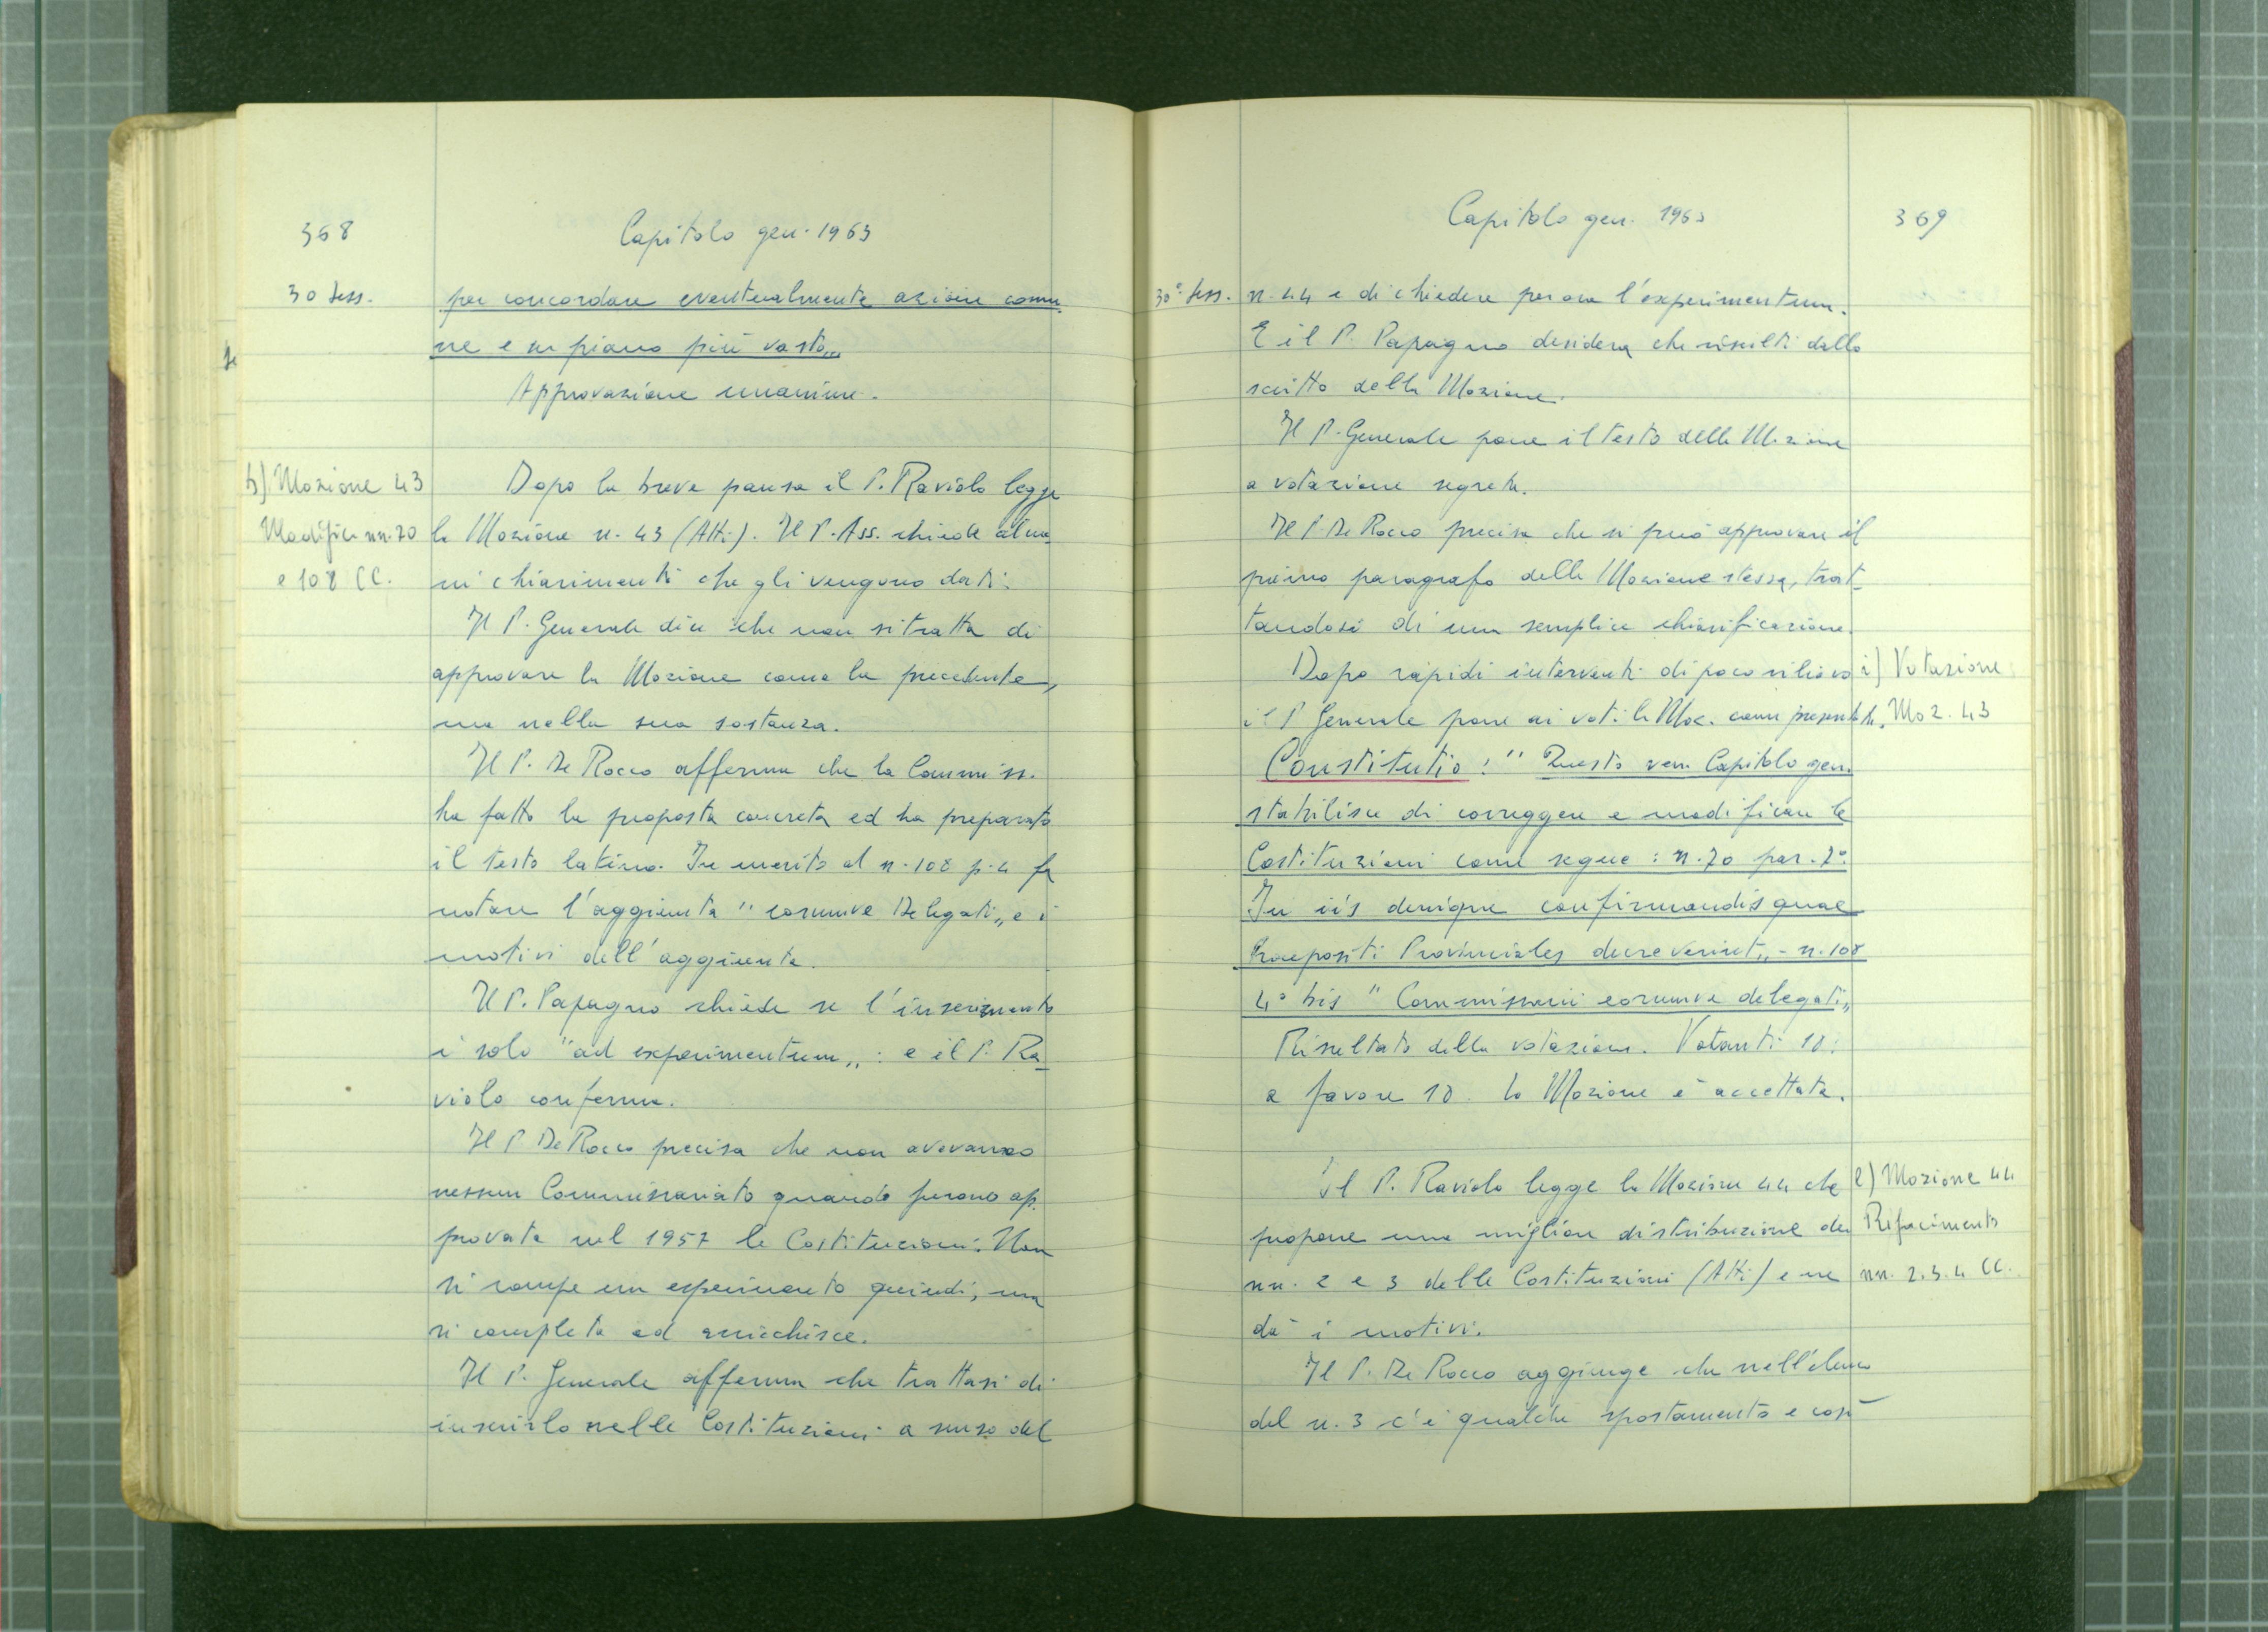 368
Capitolo gen. 1963
30 Sess.
per concordare eventualmente azione comu
ne e su piano più vasto„
Approvazione unanime.
h) Mozione 43
Modifica nn. 70
e 108 CC.
Dopo la breve pausa il P. Raviolo legge
la Mozione n. 43 (Atti). Il P. Ass. chiede alcu
ni chiarimenti che gli vengono dati.
Il P. Generale dice che non si tratta di
approvare la Mozione come la precedente,
ma nella sua sostanza.
Il P. De Rocco afferma che la Commiss.
ha fatto la proposta concreta ed ha preparato
il testo latino. In merito al n. 108 p. 4 fa
notare l'aggiunta "eorumve Delegati„ e i
motivi dell'aggiunta.
Il P. Papagno chiede se l'inserimento
è solo "ad experimentum„: e il P. Ra-
violo conferma.
Il P. De Rocco precisa che non avevamo
nessun Commissariato quando furono ap.
provate nel 1957 le Costituzioni. Non
si rompe un esperimento quindi, ma
si completa ed arricchisce.
Il P. Generale afferma che trattasi di
inserirlo nelle Costituzioni a senso del
Capitolo gen. 1963
369
30ª Sess.
n. 44 e di chiedere per ora l'experimentum.
E il P. Papagno desidera che risulti dallo
scritto della Mozione.
Il P. Generale pone il testo della Mozione
a votazione segreta.
Il P. De Rocco precisa che si può approvare il
primo paragrafo della Mozione stessa, trat-
tandosi di una semplice chiarificazione.
Dopo rapidi interventi di poco rilievo
il P. Generale pone ai voti la Moz. come presentata.
i) Votazione
Moz. 43
Constitutio: "Questo ven. Capitolo gen.
stabilisce di correggere e modificare le
Costituzioni come segue: n. 70 par. 7°:
In iis denique confirmandis quae
Praepositi Provinciales decreverint„ - n. 108
4° bis "Commissarii eorumve delegati„
Risultato della votazione. Votanti 18:
a favore 18. La Mozione è accettata.
Il P. Raviolo legge la Mozione 44 che
propone una migliore distribuzione dei
nn. 2 e 3 delle Costituzioni (Atti) e ne
dà i motivi.
l) Mozione 44
Rifacimento
nn. 2. 3. 4 CC.
Il P. De Rocco aggiunge che nell'elenco
del n. 3 c'è qualche spostamento e così